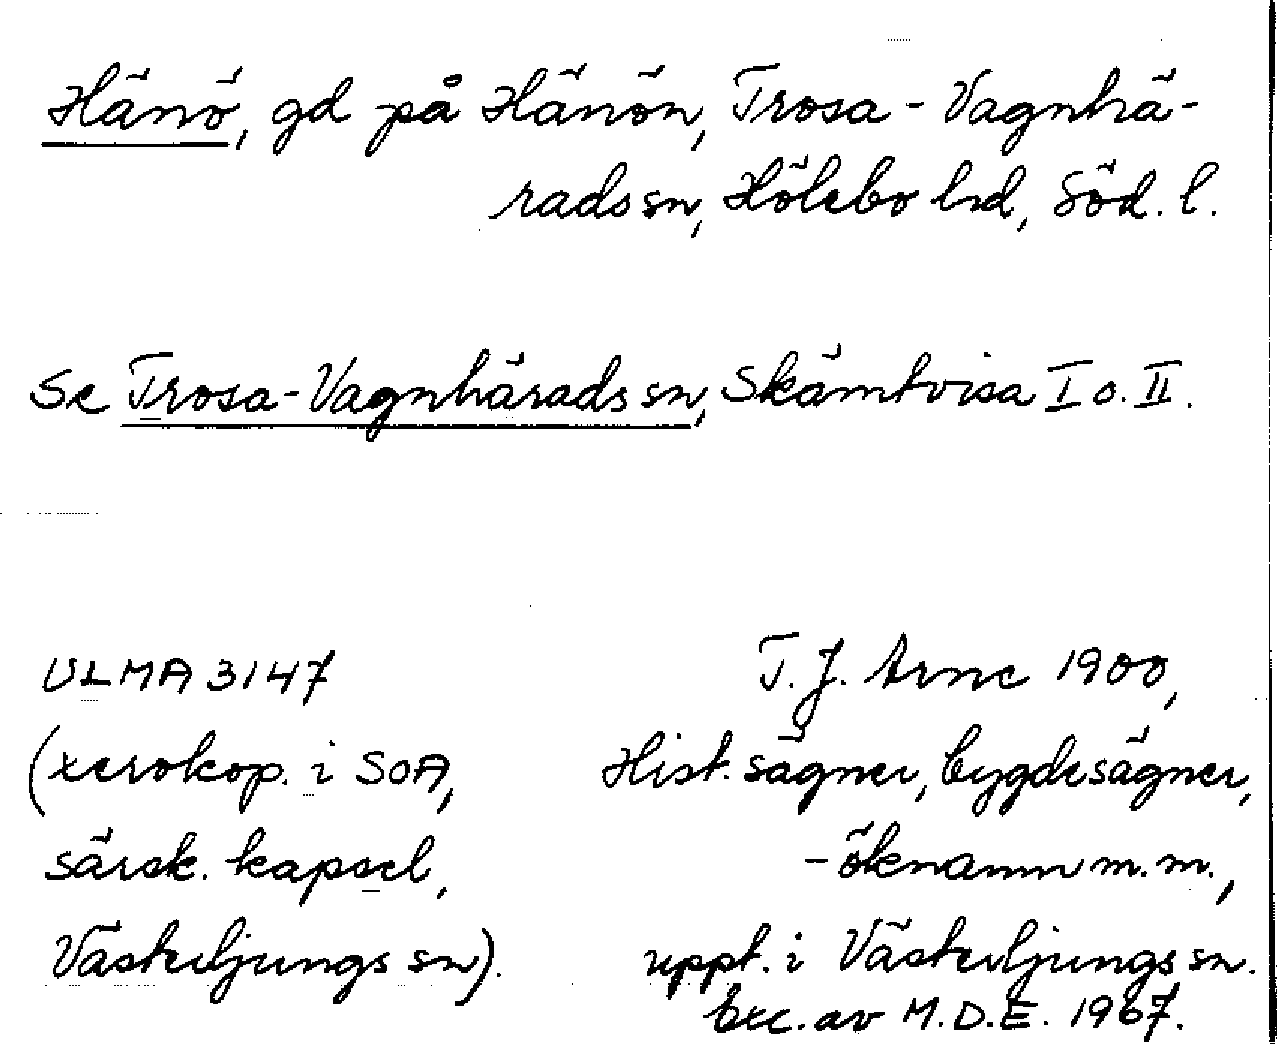 Hänö, gd på Hänön, Trosa-Vagnhä-
rads sn, Hölebo hd, Söd. l.
Se Trosa-Vagnhärads sn, Skämtvisa I o. II.
ULMA 3147
(xerokop. i SOA,
särsk. kapsel,
Västerljungs sn).
T. J. Arne 1900,
Hist. sägner, bygdesägner,
-öknamn m.m.,
uppt. i Västerljungs sn.
Exc. av M.D.E. 1967.